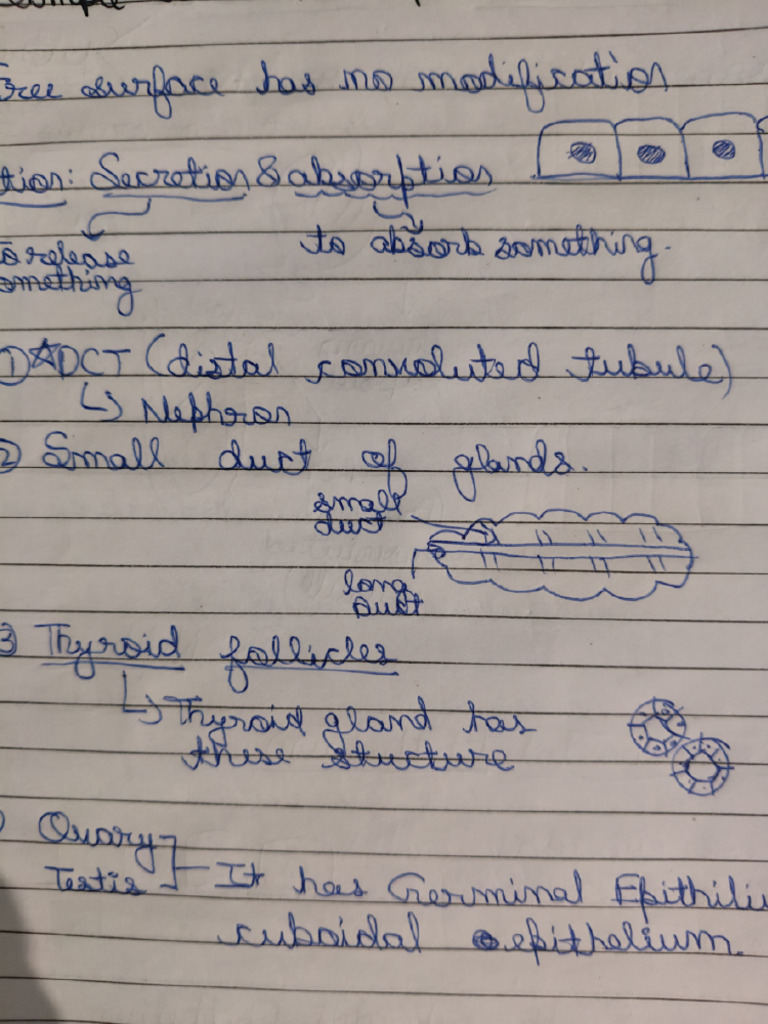 Free surface has no modification
tion: Secretion & absorption
to release
omething
to absorb something.
① ☆DCT (distal convoluted tubule)
↳ Nephron
② Small duct of glands.
small
duct
long
duct
3 Thyroid follicles
↳ Thyroid gland has
these structure
Ovary
Testis
It has Germinal Epithiliu
cuboidal epithelium.